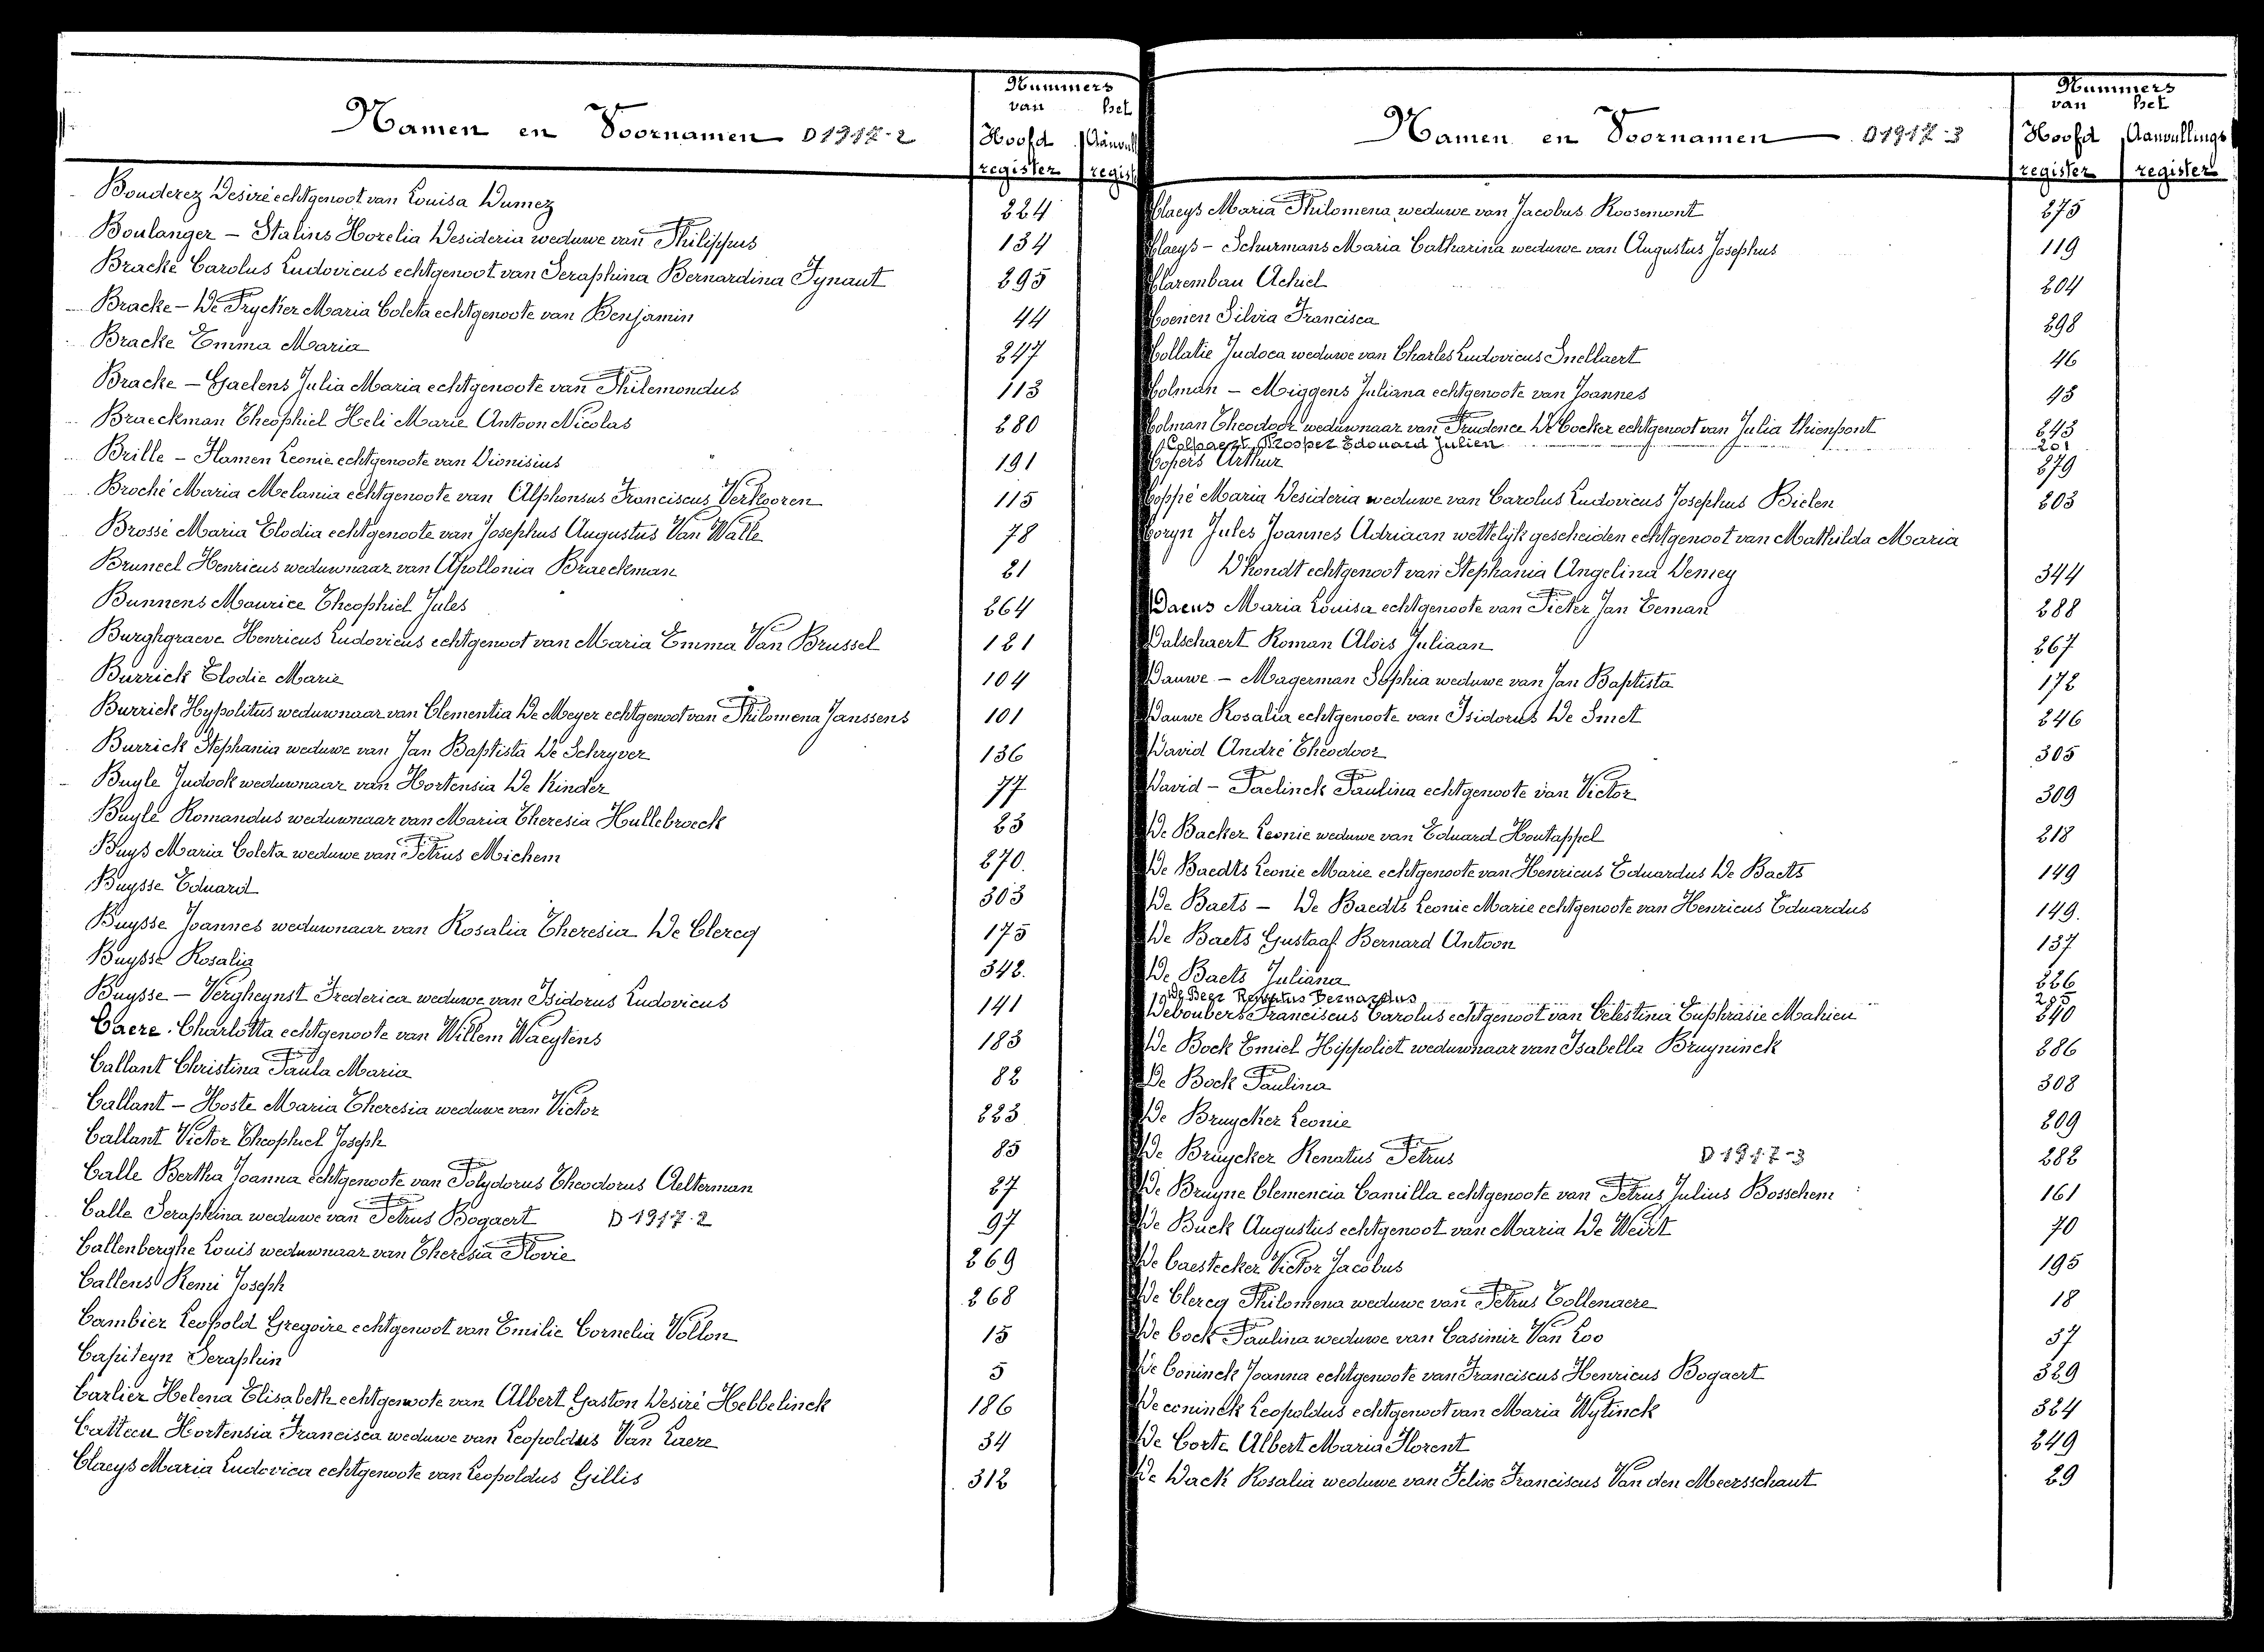 Namen en Voornamen D 1917-2
Nummers
van het
Hoofd Aanvull
register regist
Bouderez Desiré echtgenoot van Louisa Dumez 224
Boulanger - Stalins Horelia Desideria weduwe van Philippus 134
Bracke Carolus Ludovicus echtgenoot van Seraphina Bernardina Tynaut 295
Bracke - De Prycker Maria Coleta echtgenoote van Benjamin 44
Bracke Emma Maria 247
Bracke - Gaelens Julia Maria echtgenoote van Philemondus 113
Braeckman Theophiel Heli Marie Antoon Nicolas 280
Brille - Hamen Leonie echtgenoote van Dionisius 191
Broché Maria Melania echtgenoote van Alphonsus Franciscus Verkooren 115
Brossé Maria Elodia echtgenoote van Josephus Augustus Van Walle 78
Bruneel Henricus weduwnaar van Apollonia Braeckman 21
Bunnens Maurice Theophiel Jules 264
Burghgraeve Henricus Ludovicus echtgenoot van Maria Emma Van Brussel 121
Burrick Elodie Marie 104
Burrick Hypolitus weduwnaar van Clementia De Meyer echtgenoot van Philomena Janssens 101
Burrick Stephania weduwe van Jan Baptista De Schryver 136
Buyle Judook weduwnaar van Hortensia De Kinder 77
Buyle Romandus weduwnaar van Maria Theresia Hullebroeck 23
Buys Maria Coleta weduwe van Petrus Michem 270
Buysse Eduard 303
Buysse Joannes weduwnaar van Rosalia Theresia De Clercq 175
Buysse Rosalia 342
Buysse - Vergheynst Frederica weduwe van Isidorus Ludovicus 141
Caere Charlotta echtgenoote van Willem Waeytens 183
Callant Christina Paula Maria 82
Callant - Hoste Maria Theresia weduwe van Victor 223
Callant Victor Theophiel Joseph 85
Calle Bertha Joanna echtgenoote van Polydorus Theodorus Aelterman 27
Calle Seraphina weduwe van Petrus Bogaert D 1917-2 97
Callenberghe Louis weduwnaar van Theresia Plovie 269
Callens Remi Joseph 268
Cambier Leopold Gregoire echtgenoot van Emilie Cornelia Vollon 15
Capiteyn Seraphin 5
Carlier Helena Elisabeth echtgenoote van Albert Gaston Desiré Hebbelinck 186
Catteeu Hortensia Francisca weduwe van Leopoldus Van Laere 34
Claeys Maria Ludovica echtgenoote van Leopoldus Gillis 312
Namen en Voornamen D 1917-3
Nummers
van het
Hoofd Aanvullings
register register
Claeys Maria Philomena weduwe van Jacobus Roosemont 275
Claeys - Schurmans Maria Catharina weduwe van Augustus Josephus 119
Clarembau Achiel 204
Coenen Silvia Francisca 298
Collatie Judoca weduwe van Charles Ludovicus Snellaert 46
Colman - Miggens Juliana echtgenoote van Joannes 43
Colman Theodoor weduwnaar van Prudence De Cocker echtgenoot van Julia Thienpont 243
Colpaert Prosper Edouard Julien 201
Copers Arthur 279
Coppé Maria Desideria weduwe van Carolus Ludovicus Josephus Bielen 203
Coryn Jules Joannes Adriaan wettelijk gescheiden echtgenoot van Mathilda Maria
D'hondt echtgenoot van Stephania Angelina Demey 344
Daeus Maria Louisa echtgenoote van Pieter Jan Eeman 288
Dalschaert Roman Alois Juliaan 267
Dauwe - Magerman Sophia weduwe van Jan Baptista 172
Dauwe Rosalia echtgenoote van Isidorus De Smet 246
David André Theodoor 305
David - Paelinck Paulina echtgenoote van Victor 309
De Backer Leonie weduwe van Eduard Houtappel 218
De Baedts Leonie Marie echtgenoote van Henricus Eduardus De Baets 149
De Baets - De Baedts Leonie Marie echtgenoote van Henricus Eduardus 149
De Baets Gustaaf Bernard Antoon 137
De Baets Juliana 226
De Beer Renatus Bernardus 285
Deboubers Franciscus Carolus echtgenoot van Celestina Euphrasie Mahieu 240
De Bock Emiel Hippoliet weduwnaar van Isabella Bruyninck 286
De Bock Paulina 308
De Bruycker Leonie 209
De Bruycker Renatus Petrus D 1917-3 282
De Bruyne Clemencia Camilla echtgenoote van Petrus Julius Bosschem 161
De Buck Augustus echtgenoot van Maria De Weirt 70
De Caestecker Victor Jacobus 195
De Clercq Philomena weduwe van Petrus Tollenaere 18
De Cock Paulina weduwe van Casimir Van Loo 37
De Coninck Joanna echtgenoote van Franciscus Henricus Bogaert 329
De coninck Leopoldus echtgenoot van Maria Wytinck 324
De Corte Albert Maria Florent 249
De Dack Rosalia weduwe van Felix Franciscus Van den Meersschaut 29